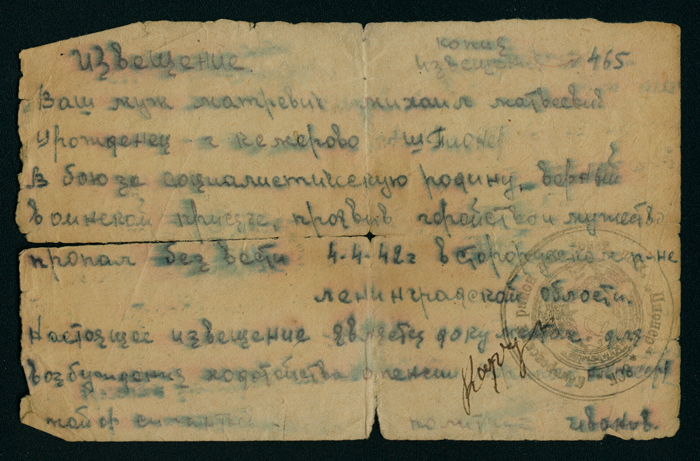 копия
Извещение извещения 465
Ваш муж матревич михаил матвеевич
Урожденец - г кемерово ш Пионер
В бою за социалистическую родину, верный
воинской присяге, проявив геройство и мужество
пропал без вести 4-4-42г в старорусском р-не
ленинградской области.
Настоящее извещение является документом для
возбуждения ходотайства о пенсии
политрук иванов.